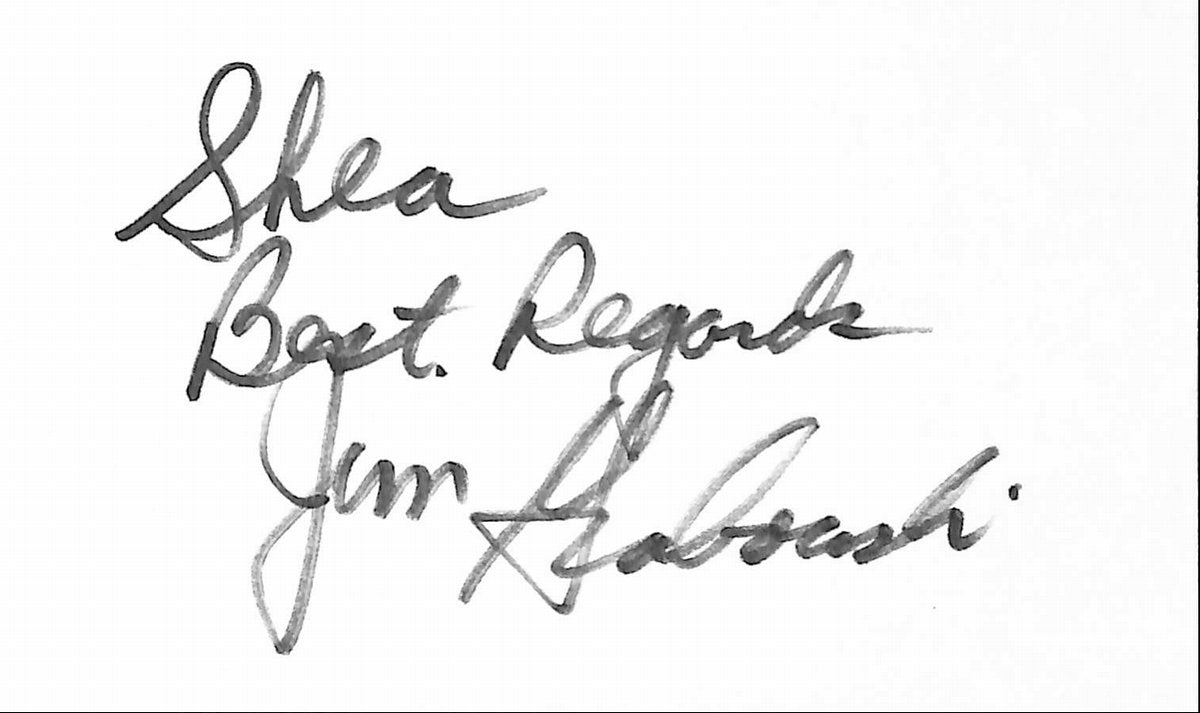 Shea
Best. Regards
Jim